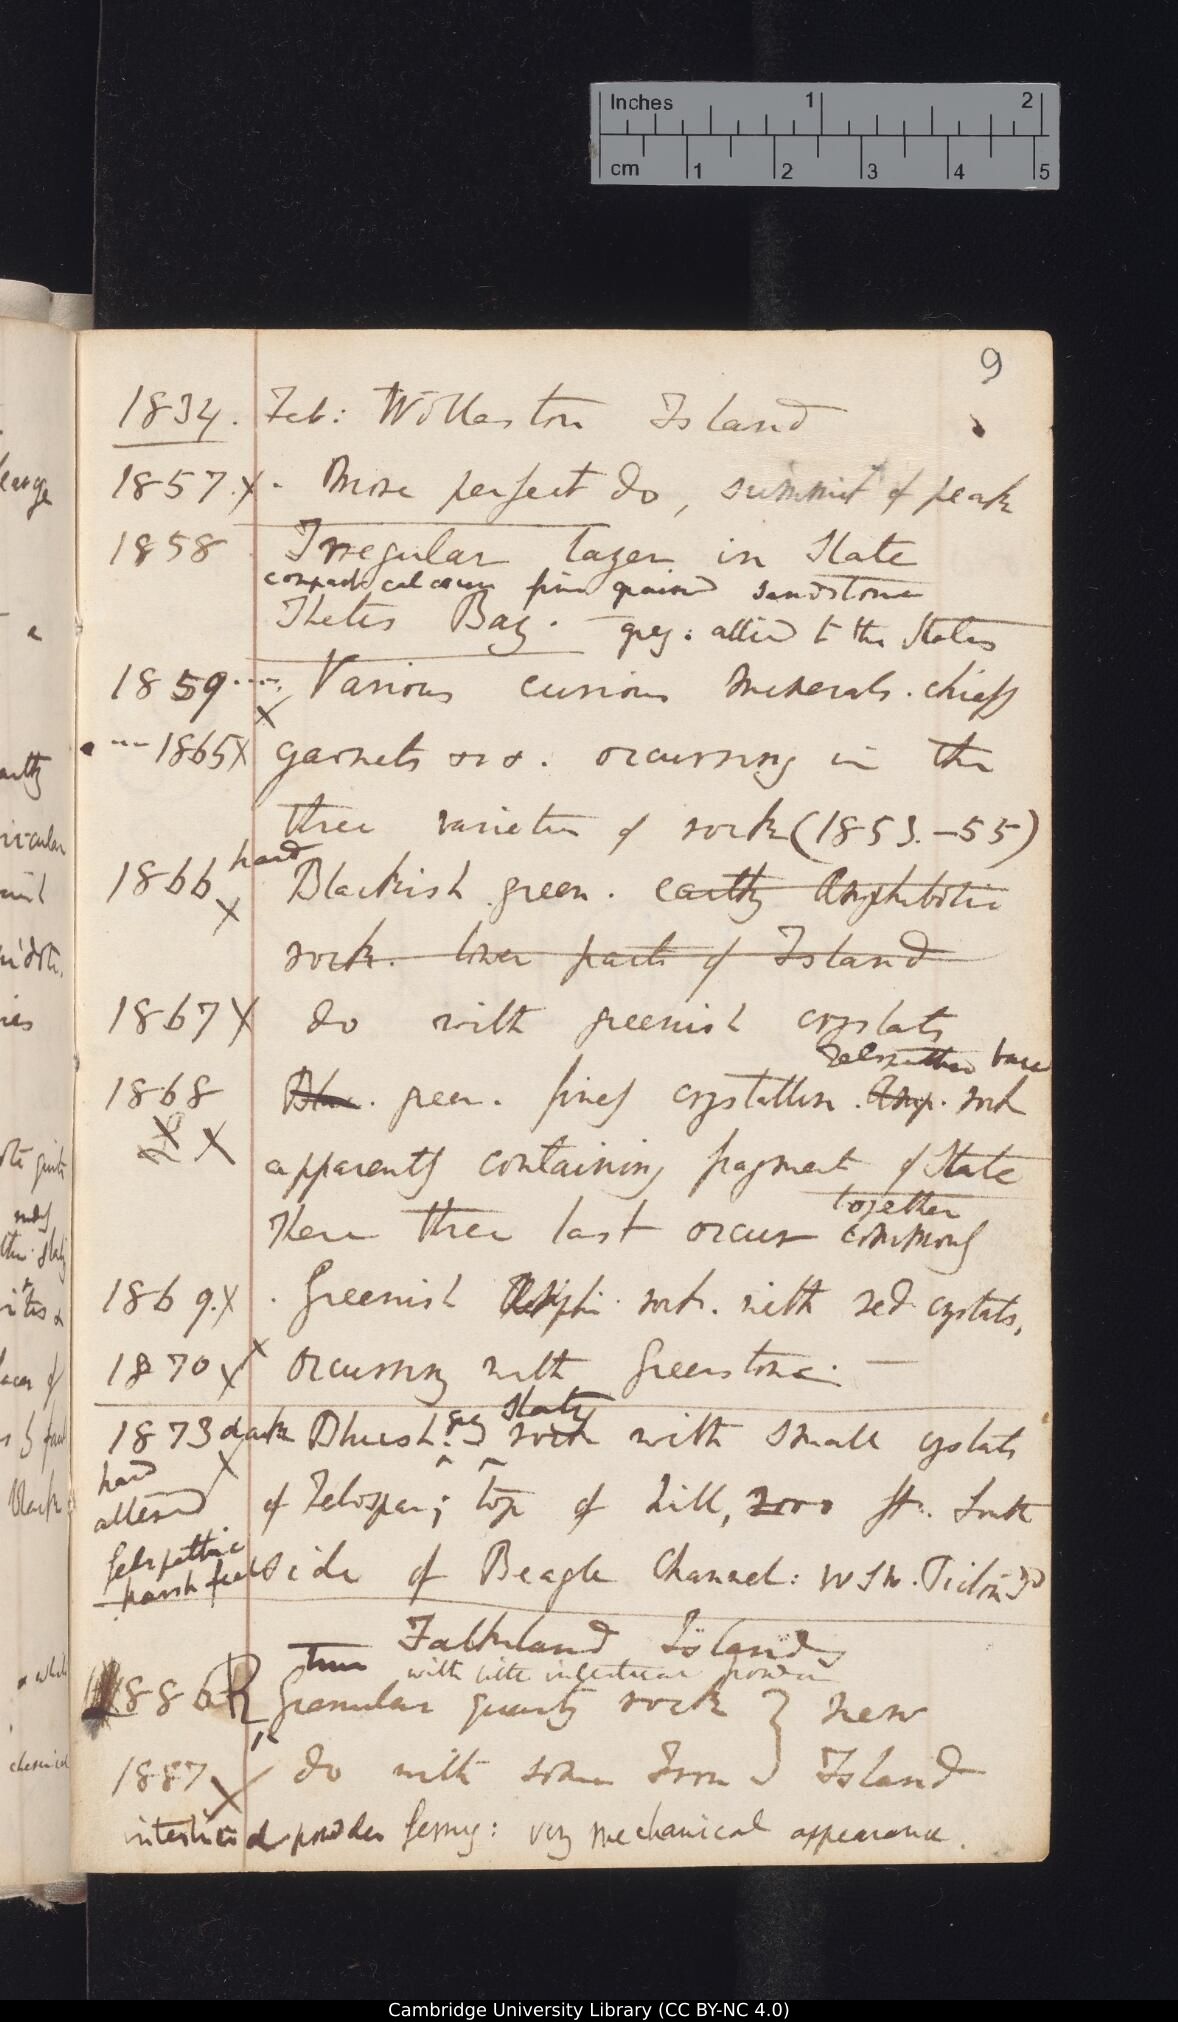 Inches 1 2
cm 1 2 3 4 5
9
1834. Feb: Wollaston Island
1857.X. More perfect do, summit of peak
1858 Irregular layer in Slate
compact calcareous fine grained sandstone
Thetis Bay. grey: allied to the Slates
1859.... Various curious minerals. chiefly
X
...1865X garnets &c &c. occurring in the
three varieties of rock (1853.–55)
hard
1866 X Blackish green. earthy Amphibolic
rock. lower parts of Island
1867X do with greenish crystals
Felspathic base
1868 Blue. green. finely crystalline. Amp. rock
X X apparently containing fragment of Slate
together
These three last occur commonly
1869.X. Greenish Amph. rock. with red crystals,
1870 X X occurring with Greenstone. —
grey slaty
1873 dark Blueish. rock with small crystals
X
hard
altered of Felspar; top of hill, 2000 ft. South
felspathic
harsh feel side of Beagle Channel: WSW. Picton Id
Falkland Islands
True with little interstitial powder
1886 R Granular quartz rock } New
1887 X do with some Iron } Island
interstitial powder ferrug: very mechanical appearance.
large
a
earthy
Black
chemical
Cambridge University Library (CC BY-NC 4.0)